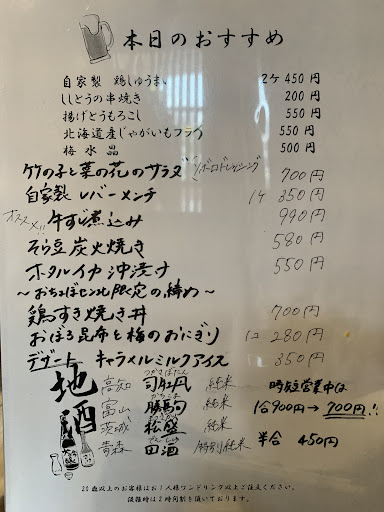 本日のおすすめ
自家製 鶏しゅうまい 2ケ 450円
ししとうの串焼き 200円
揚げとうもろこし 550円
北海道産じゃがいもフライ 550円
梅水晶 500円
竹の子と菜の花のサラダ 700円
自家製レバーメンチ 1ケ 350円
オススメ!! 牛すじ煮込み 990円
そら豆炭火焼き 580円
ホタルイカ沖漬け 550円
〜おちょぼセンバ限定の締め〜
鶏すき焼き丼 700円
おぼろ昆布と梅のおにぎり 1コ 280円
デザート キャラメルミルクアイス 350円
地酒
高知 司牡丹 つかさぼたん 純米
富山 勝駒 かちこま 純米
茨城 松盛 純米
青森 田酒 でんしゅ 特別純米
時短営業中は
1合900円→700円!!
半合 450円
20歳以上のお客様はお1人様ワンドリンク以上ご注文ください。
混雑時は2時間制を頂いております。